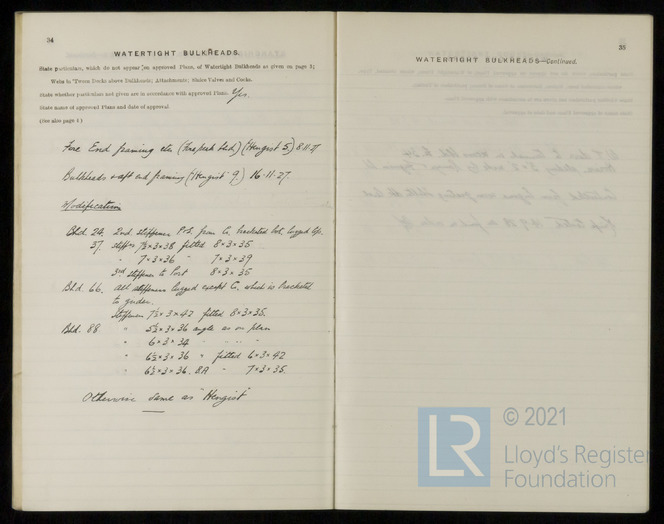 34
WATERTIGHT BULKHEADS.
State particulars, which do not appear on approved Plans, of Watertight Bulkheads as given on page 3;
Webs in 'Tween Decks above Bulkheads; Attachments; Sluice Valves and Cocks.
State whether particulars not given are in accordance with approved Plans. Yes.
State name of approved Plans and date of approval
(See also page 4)
Fore End framing etc (Forepeak bhd) (Hengist 5) 8.11.27
Bulkheads & aft end framing (Hengist 9) 16.11.27.
Modification
Bhd. 24. 2nd stiffener P.S. from C. bracketed bot, lugged top.
37. stiffrs 7½×3×38 fitted 8×3×35
" 7×3×36 " 7×3×39
3rd stiffener to Port 8×3×35
Bhd. 66. All stiffeners lugged except C. which is bracketed
to girder.
Stiffeners 7½×3×42 fitted 8×3×35.
Bhd. 88 " 5½×3×36 angle as on plan
" 6×3×34 " " "
" 6½×3×36 " fitted 6×3×42
" 6½×3×36. BA " 7×3×35.
Otherwise same as "Hengist"
35
WATERTIGHT BULKHEADS—Continued.
LR
© 2021
Lloyd's Register
Foundation